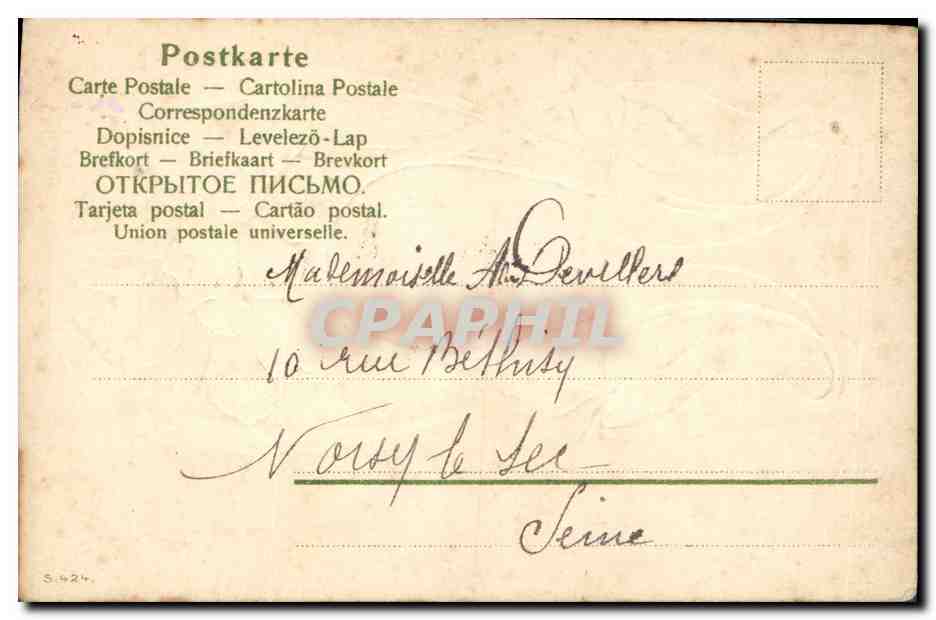 Postkarte
Carte Postale — Cartolina Postale
Correspondenzkarte
Dopisnice — Levelező-Lap
Brefkort — Briefkaart — Brevkort
ОТКРЫТОЕ ПИСЬМО.
Tarjeta postal — Cartão postal.
Union postale universelle.
Mademoiselle Devillers
CPAPHIL
10 rue Béthisy
Noisy le Sec
Seine
S.424.